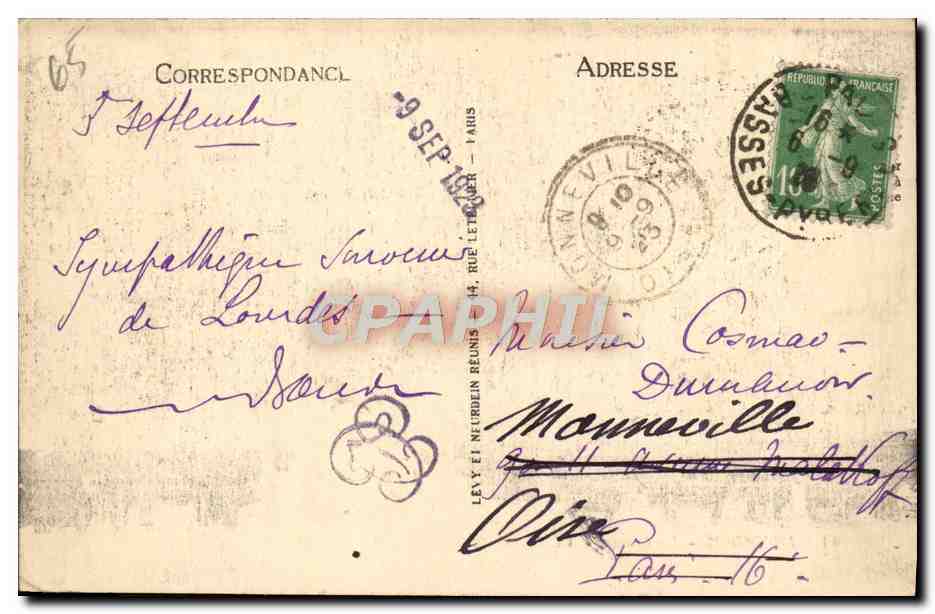 65
CORRESPONDANCE
ADRESSE
5 septembre
-9 SEP 1923
MONNEVILLE
OISE
9 10
9-9
23
RÉPUBLIQUE FRANÇAISE
10
POSTES
BASSES-PYRÉES
16 *
8 -9
Sympathique Souvenir
de Lourdes
CPAPHIL
Monsieur Cosmao-
Dumanoir
Monneville
11 avenue Malakoff
Oise
Paris 16e
LEVY ET NEURDEIN RÉUNIS, 44, RUE LETELLIER - PARIS